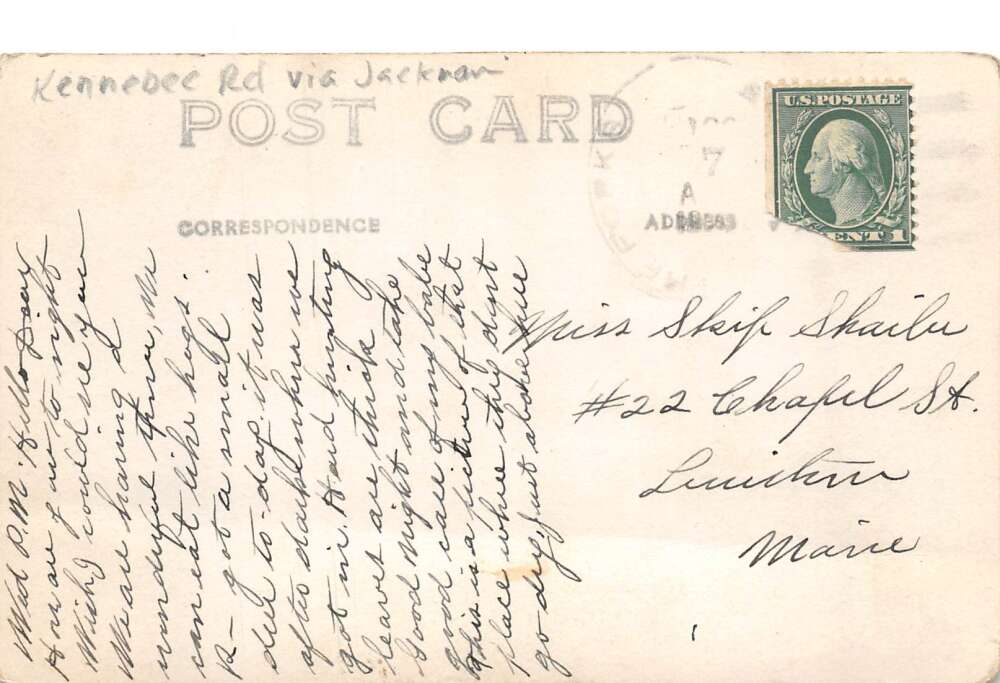 Kennebec Rd via Jackman
POST CARD
CORRESPONDENCE
ADDRESS
7
A
U.S. POSTAGE
CENT 1
Wed P.M. Hello Dear
How are you to night
Wish I could see you
We are having a
wonderful time, Mr
can eat like hogs.
R- got a small
deer to-day, it was
after dark when we
got in. Hard hunting
leaves are thick
Good night and take
good care of my babe
this is a picture of that
place where it does dont
go dry, just above you
Miss Skip Skailer
#22 Chapel St.
Lewiston
Maine